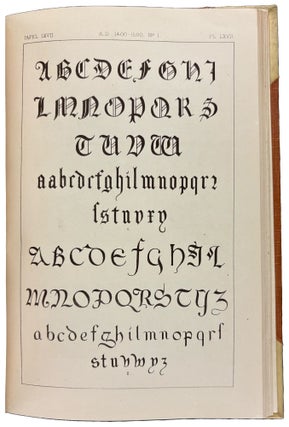 A.D. 1400-1500. Nº 1.
PL. LXVII
A B C D E F G H I
L M N O P Q R S
T U V W
a a b c d e f g h i l m n o p q r ꝛ
ſ s t u v x y
A B C D E F G H I L
M N O P Q R S T Y Z
a b c d e f g h i l m n o p q r ſ
s t u v w y z